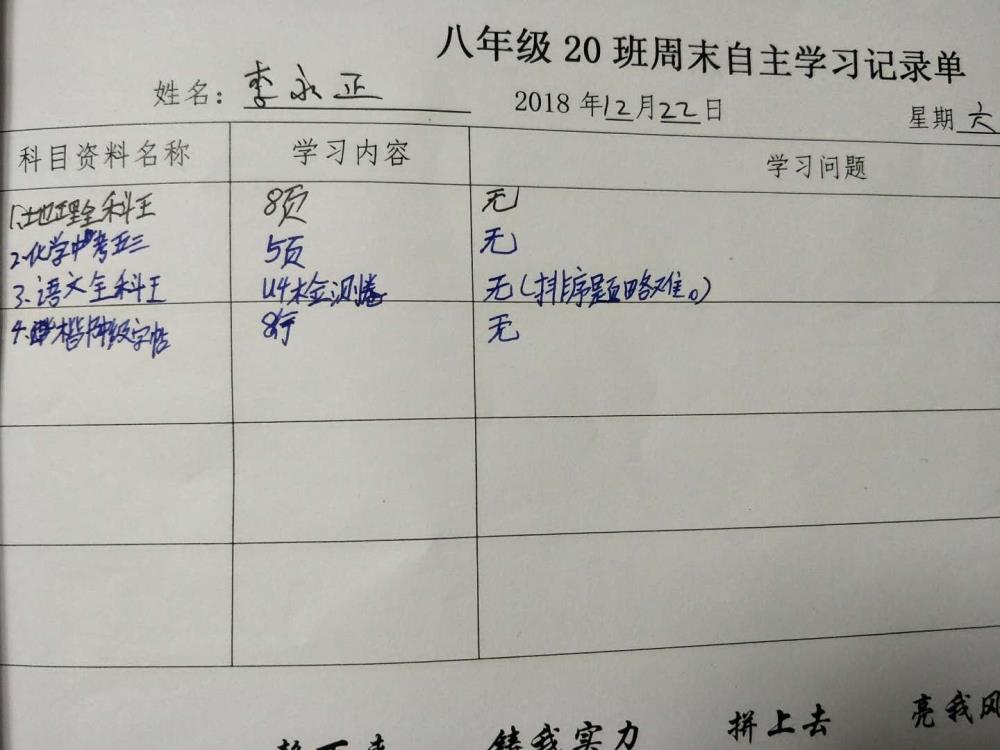 八年级 20 班周末自主学习记录单
姓名：李永正 2018 年12月22日 星期六
科目资料名称 学习内容 学习问题
1.地理全科王 8页 无
2.化学中考五三 5页 无
3.语文全科王 U4检测卷 无（排序题略难。）
4. 字帖 8行 无
铸我实力 拼上去 亮我风